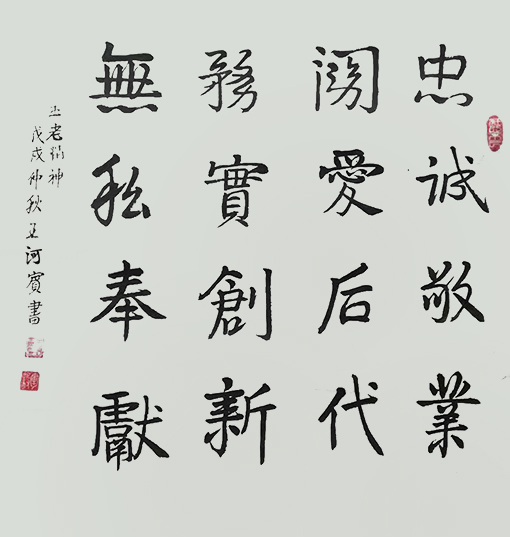 忠誠敬業
関愛后代
務實創新
無私奉獻
五老精神
戊戌仲秋王河賓書